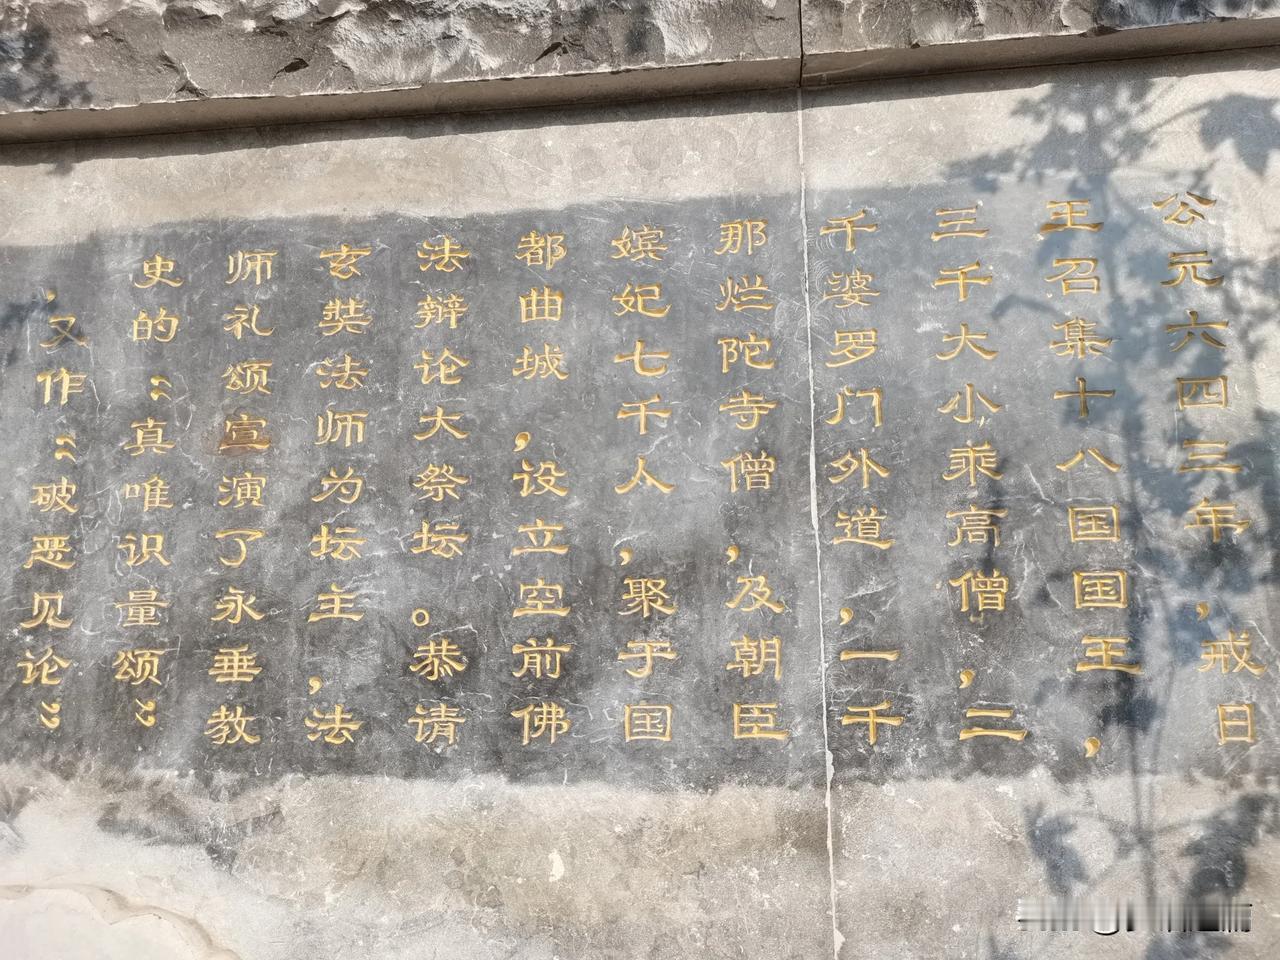 公元六四三年，戒日
王召集十八国国王，
三千大小乘高僧，二
千婆罗门外道，一千
那烂陀寺僧，及朝臣
嫔妃七千人，聚于国
都曲城，设立空前佛
法辩论大祭坛。恭请
玄奘法师为坛主，法
师礼颂宣演了永垂教
史的“真唯识量颂”
，又作“破恶见论”